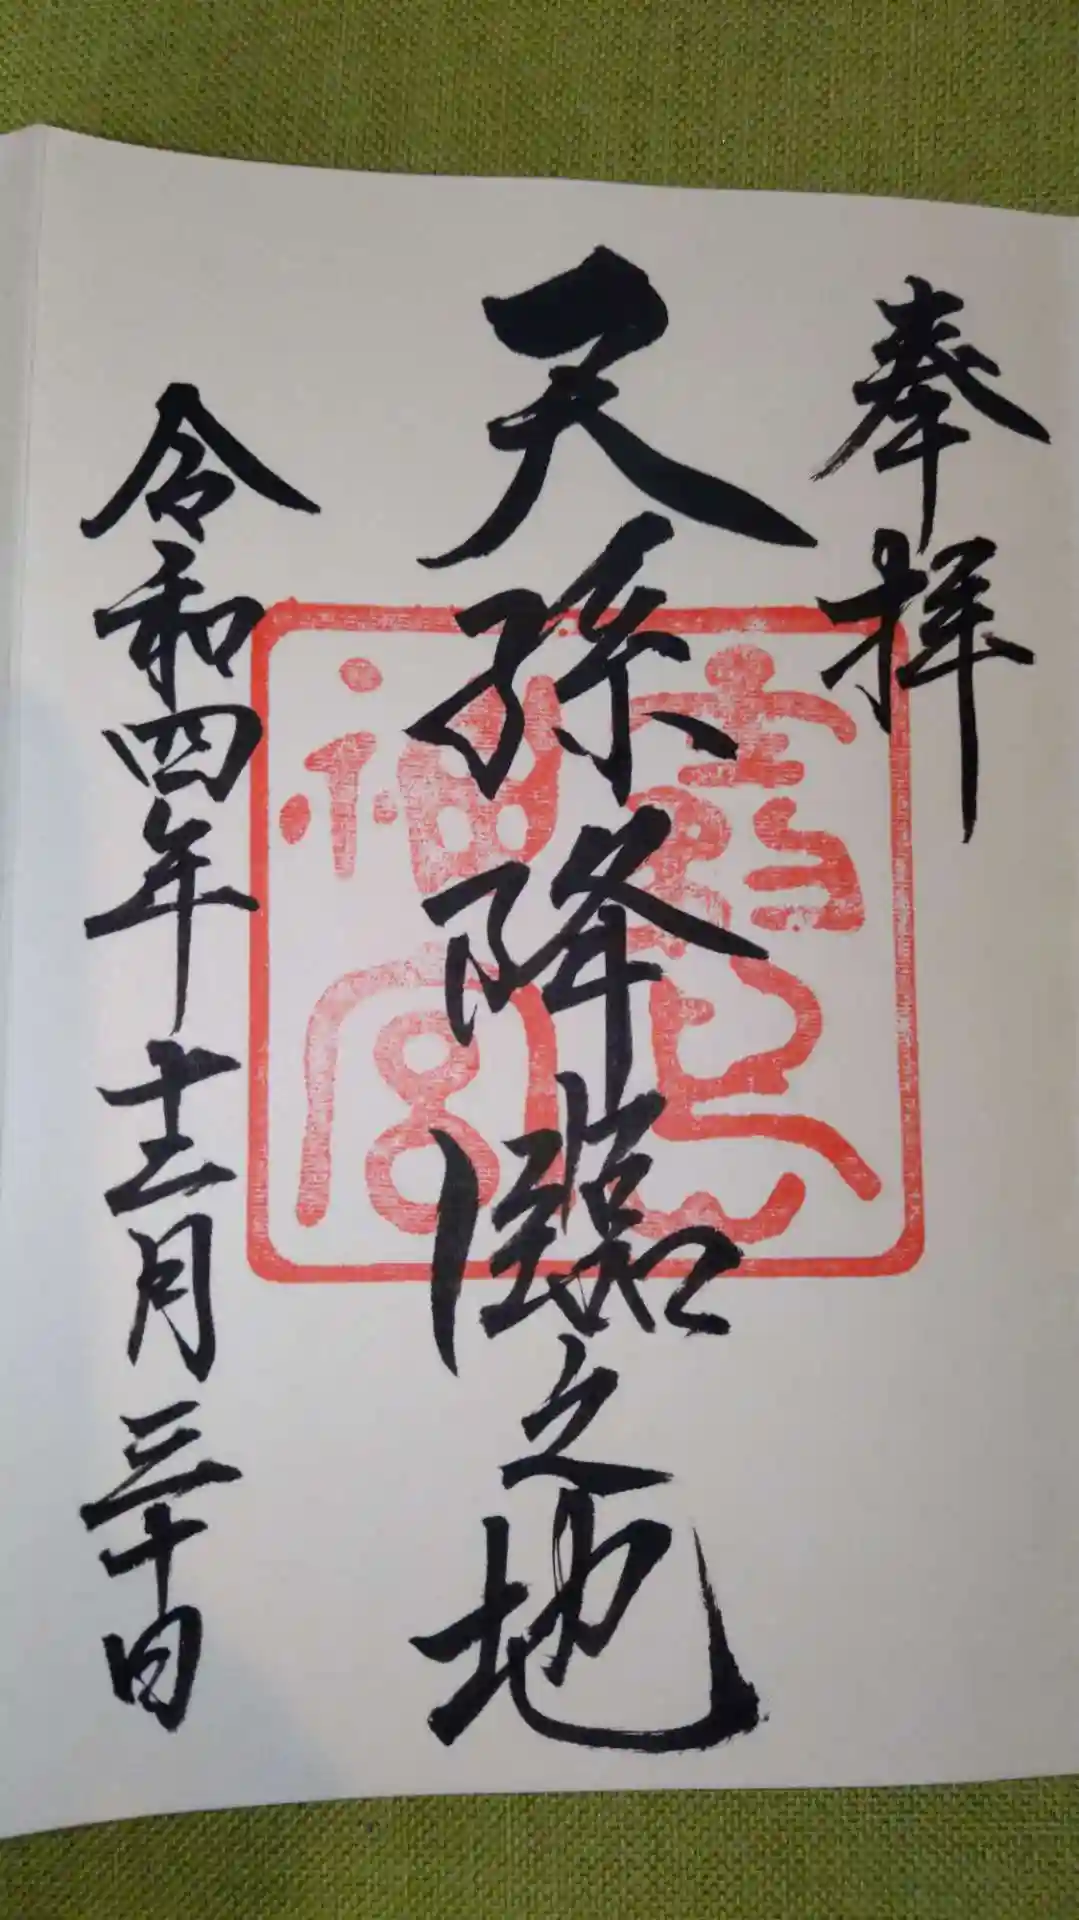 奉拝
天孫降臨之地
霧島
神宮
令和四年十二月三十日